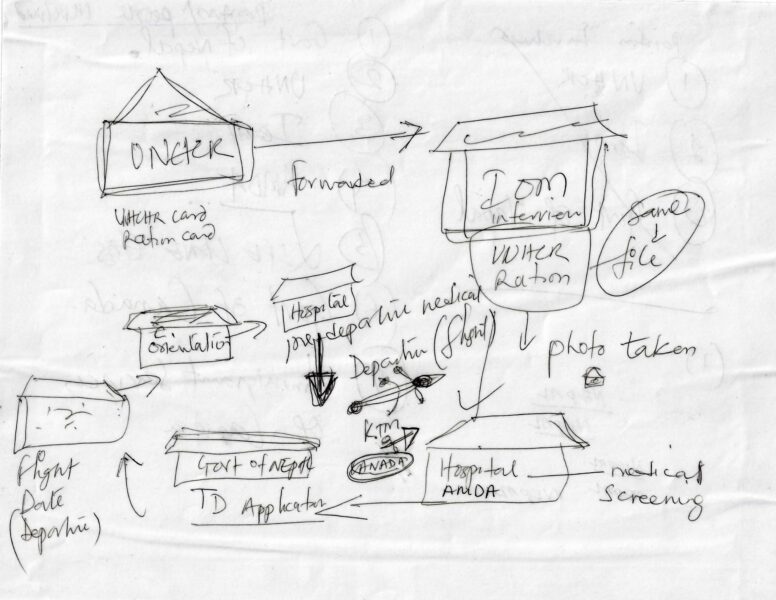 UNHCR
forwarded
UNHCR card
Ration card
IOM
interview
UNHCR
Ration
same
file
photo taken
Hospital
pre-departure medical
(flight)
Departure
Orientation
KTM
CANADA
Hospital
AMDA
medical
screening
Govt of Nepal
TD Application
Flight
Date
(Departure)